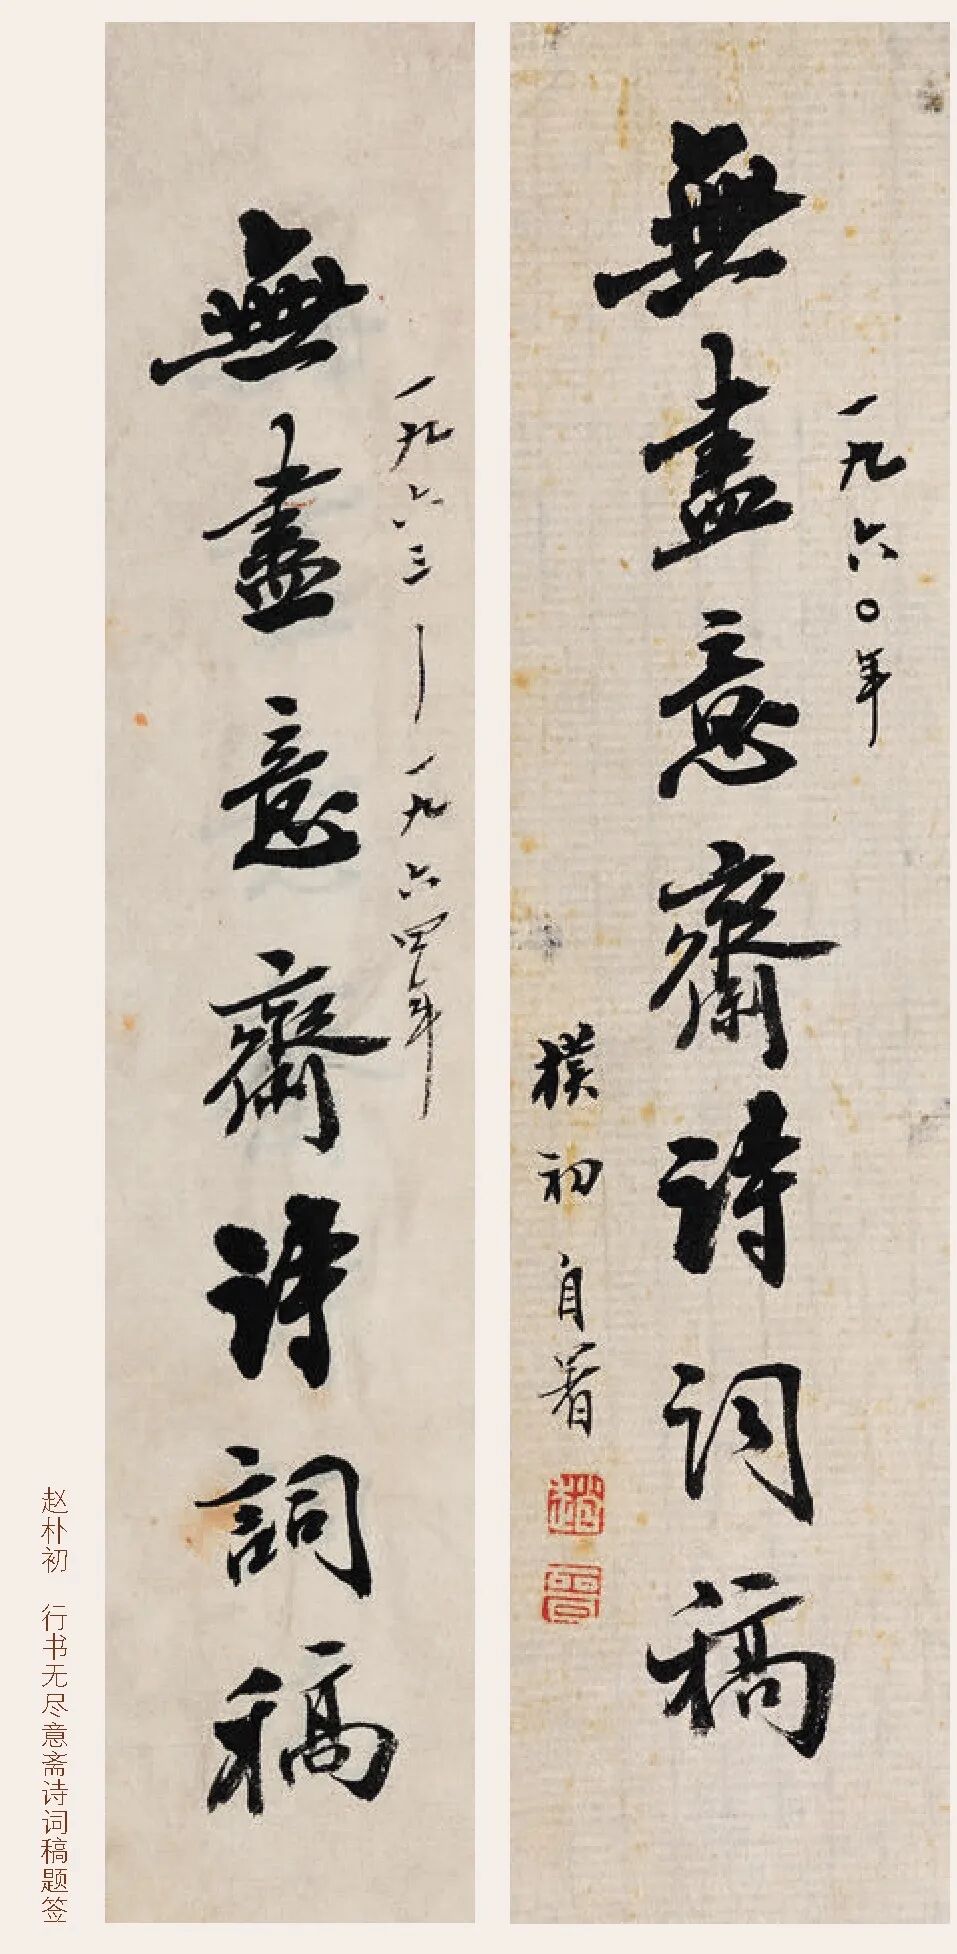 無盡意齋诗词稿
一九六〇年
樸初自署
無盡意齋诗詞稿
一九六三—一九六四年
赵朴初 行书无尽意斋诗词稿题签